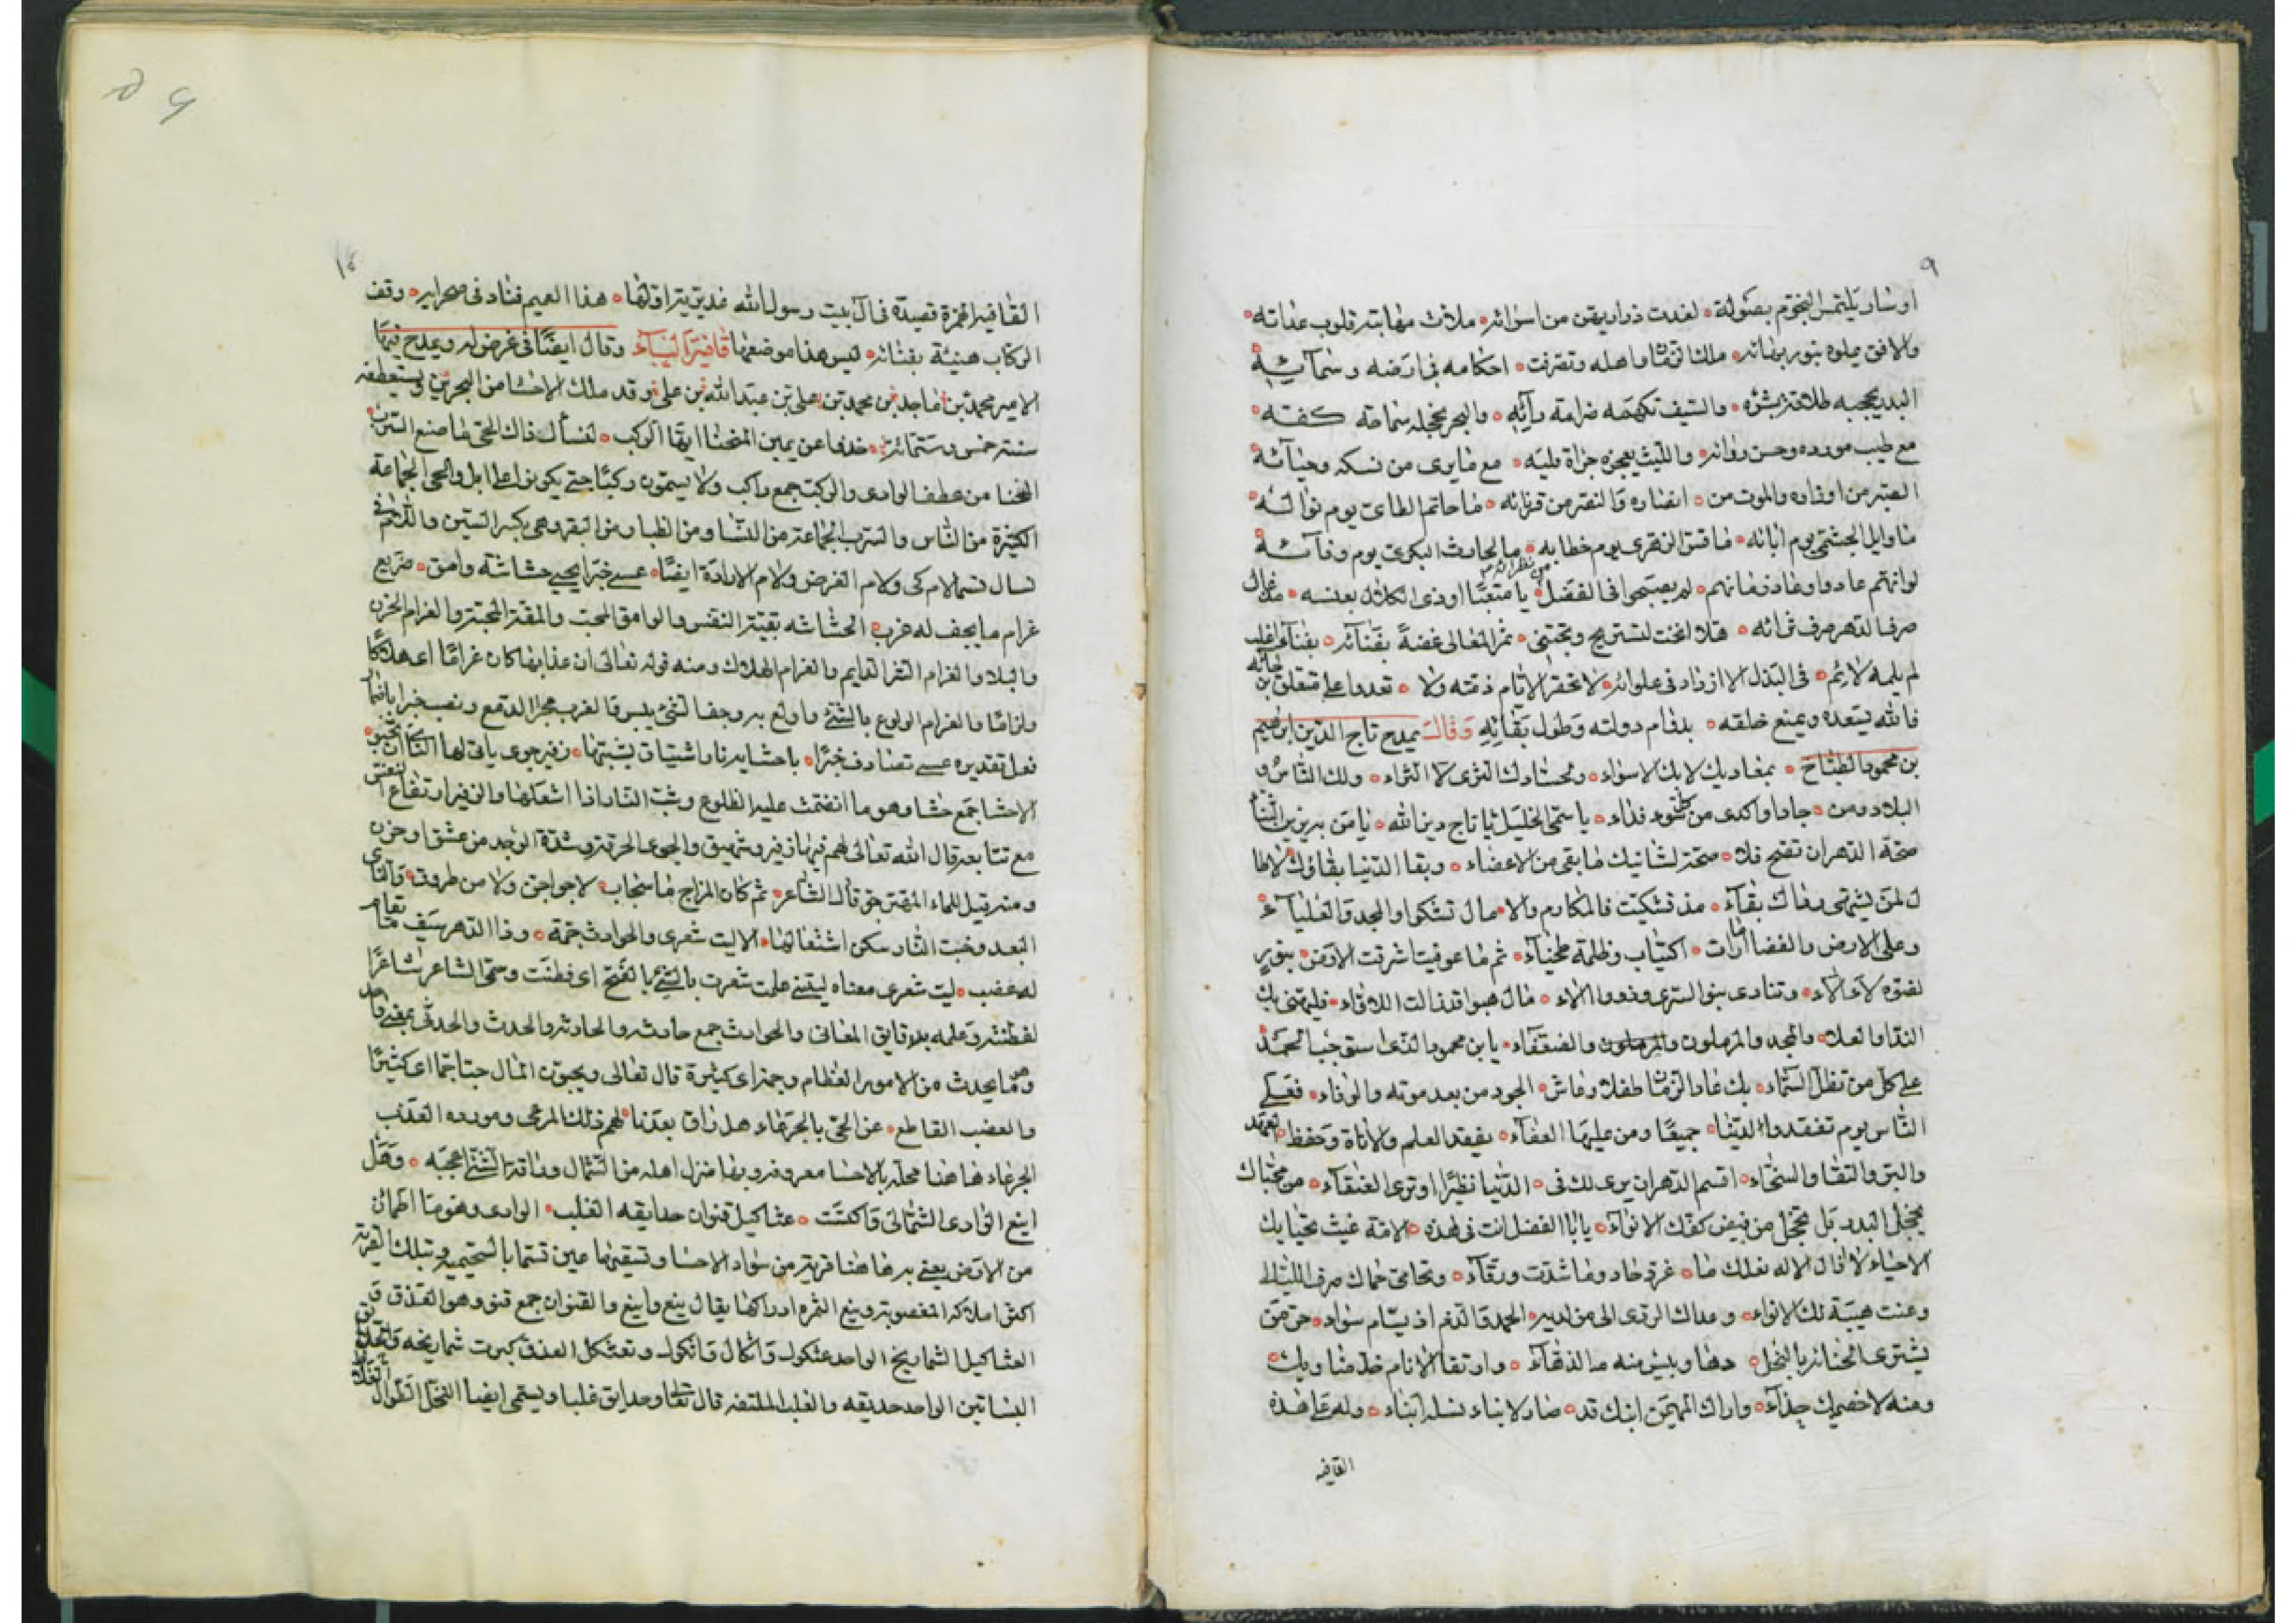 ٩
او شاو يلتمس النجوم بصولة ٥ لغدت ذراريهن من اسرائه ٥ ملأت مهابته قلوب عداته ٥
والافق يملوه بنور بهائه ٥ ملك اهله وتصرفت ٥ احكامه في ارضه وسمائه
البدر يحجبه طلاقة بشره ٥ والسيف تكهمه صرامة رآيه ٥ والبحر يخجله سماحة كفه ٥
مع طيب مورده وحسن روائه ٥ والليث يعجزه جراة قلبه ٥ مع ما يرى من نسكه وحيائه ٥
الصبر من اوتاده والموت من ٥ انصاره والنصر من قرنائه ٥ ما حاتم الطائ يوم نواله ٥
ما وايل الجشمي يوم ابائه ٥ ما قس يوم خطابه ٥ ما الحارث البكرى يوم وفائه ٥
لو انهم عادوا وعاد زمانهم ٥ لم يصبحوا في الفضل من نظرائه ٥ يا متعبًا بعنسه ٥
صرف الدهر صرف ثوائه ٥ هلا انخت لتستريح وتجتنى ٥ ثمر المعالى غضة بفنائه ٥ بفناء اغلب
لم يلمه لائم ٥ في البذل الا ازداد في غلوائه ٥ لا تخفر الايام ذمته ولا ٥ تعدوا على متعلق
فالله يسعده ويمنع خلقه ٥ بدوام دولته وطول بقائه وقال يمدح تاج الدين ابراهيم
بن محمود الطباخ ٥ بمعاديك لا بك الاسواء ٥ ولحسادك الثرى لا الثراء ٥ ولك الناس و
البلاد ومن ٥ جادا واكدى من كل سوء فداء ٥ يا سمي الخليل يا تاج دين الله ٥ يا من به يزين الثناء
صحة الدهر ان تصح فلا ٥ صحة لشانيك ما بقى من الاعضاء ٥ وبقا الدنيا بقاؤك لا طا
ل لمن يشتهى وفاك بقاء ٥ مذ تشكيت فالمكارم والا ٥ مال تشكوا والمجد والعلياء ٥
وعلى الارض والفضا ٥ اكتياب وظلمة طخياء ٥ ثم ما عوفيت اشرقت الارض ٥ بنور
لضوه لألاء ٥ وتنادى بنو السرى وذووا الالاء ٥ مال هبوا قد زالت اللاواء ٥ فليهنى بك
الندا والعلا ٥ والمجد والمرملون والضعفاء ٥ يا بن محمود الذى استوجب الحمد
على كل من تظل السماء ٥ بك عاد الزمان طفلا وعاش ٥ الجود من بعد موته والوفاء ٥ فعسى
الناس يوم تفقد والدنيا ٥ جميعًا ومن عليها العفاء ٥ يفقد العلم والاناة وحفظ العهد
والبر والتقا والسخاء ٥ اقسم الدهر ان يرى لك فى ٥ الدنيا نظيرًا او ترى العنقاء ٥ من محياك
يخجل البدر بل يخجل من فيض كفك الانواء ٥ يا ابا الفضل انت في هذه ٥ الامة غيث تحيا بك
الاحياء لا ازال الاله ظلك ما ٥ غرد حاد وما شدت ورقاء ٥ وتحامى حماك صرف الليالى
وعنت هيبة لك الانواء ٥ وعداك الردى الى من لديه ٥ الحمد والذم اذ يسام سواء ٥ حق من
يشترى الحنا بالنجل ٥ دهاء وبيس منه الدهاء ٥
ومنه لاخمصيك حذاء ٥ واراك المهيمن ابنك قد ٥ صار لابناء نسله ابناء ٥ وله على هذه
القافيه
١٠
القافيه الهمزة قصيدة في آل بيت رسول الله اولها ٥ هذا العميم فناد في صحرايه ٥ وقف
الركاب هنيئة بفنائه ٥ ليس هذا موضعها قافية الباء وقال ايضًا في غرض له ويمدح فيها
الامير محمد بن ماجد بن محمد بن على بن عبد الله بن على وقد ملك الاحسا من البحرين ويستعطفه
سنة خمس وستمائة ٥ خذا عن يمين المنحنا ايها الركب ٥ لنسأل ذاك الحى ما صنع السرب ٥
المنحنا من عطف الوادى والركب جمع راكب ولا يسمون ركبًا حتى يكونوا على ابل والحى الجماعة
الكثيرة من الناس والسرب الجماعة من النسا ومن الظبا ومن البقر وهى بكسر السين واللام في
نسال تسما لام كى ولام الغرض ولام الارادة ايضًا ٥ عسى خبرًا يحيى حشاشة وامق ٥ صريع
غرام ما يجف له غرب ٥ الحشاشه بقية النفس والوامق المحب والمقة المحبة والغرام الحزن
والبلاء والغرام الشر الدايم والغرام الهلاك ومنه قوله تعالى ان عذابها كان غرامًا اى هلاكًا
ولزامًا والغرام الولوع بالشئ واولع به وجف الشئ يبس والغرب مجرا الدمع ونصب خبرا باضما
فعل تقديره عسى تصادف خبرًا ٥ باحشايه نار اشتياق يشبها ٥ زفير جوى يأبى لها النأى ان تخبو ٥
الاحشا جمع حشا وهو ما انضمت عليه الضلوع وشب النار اذا اشعلها والزفير ارتفاع النفس
مع تتابعه قال الله تعالى لهم فيها زفير وشهيق والجوى الحرقة وشدة الوجد من عشق او حزن
ومنه قيل للماء المتغير جو قال الشاعر ٥ ثم كان المزاج ماء سحاب ٥ لا جو اجن ولا مطروق ٥ والنأى
البعد وخبت النار سكن اشتعالها ٥ الا ليت شعرى والحوادث جمة ٥ وذا الدهر سيف ما يقام
له عضب ٥ ليت شعرى معناه ليتنى علمت شعرت بالشئ بالفتح اى فطنت وسمى الشاعر شاعرًا
لفطنته وعلمه بدقايق المعانى والحوادث جمع حادثه والحادثه والحدث والحدثى بمعنى واحد
وهو ما يحدث من الامور العظام وجمة اى كثيرة قال تعالى ويحبون المال حبًا جمًا اى كثيرًا
والعضب القاطع ٥ عن الحى بالجرعاء هل راق بعدنا ٥ لهم ذلك المرعى ومورده العذب
الجرعاء هاهنا محلة بالاحسا معروفه وبها منزل اهله من الشمال وراق الشئ اعجبه ٥ وهل
اينع الوادى الشمالى واكتست ٥ عثاكيل قنوان حدايقه الغلب ٥ الوادى وهو ما اطمان
من الارض يعنى به هاهنا قرية من سواد الاحسا وتسقيها عين تسما بالسحيميه وتلك القرية
اكثر املاكه المغصوبة وينع الثمره ادراكها يقال ينع واينع والقنوان جمع قنو وهو العذق و
العثاكيل الشماريخ الواحد عثكول واثكال واثكول وتعثكل العذق كبرت شماريخه
البساتين الواحد حديقه والغلب الملتفه قال تعالى وحدايق غلبا ويسمى ايضا النخل الطوال